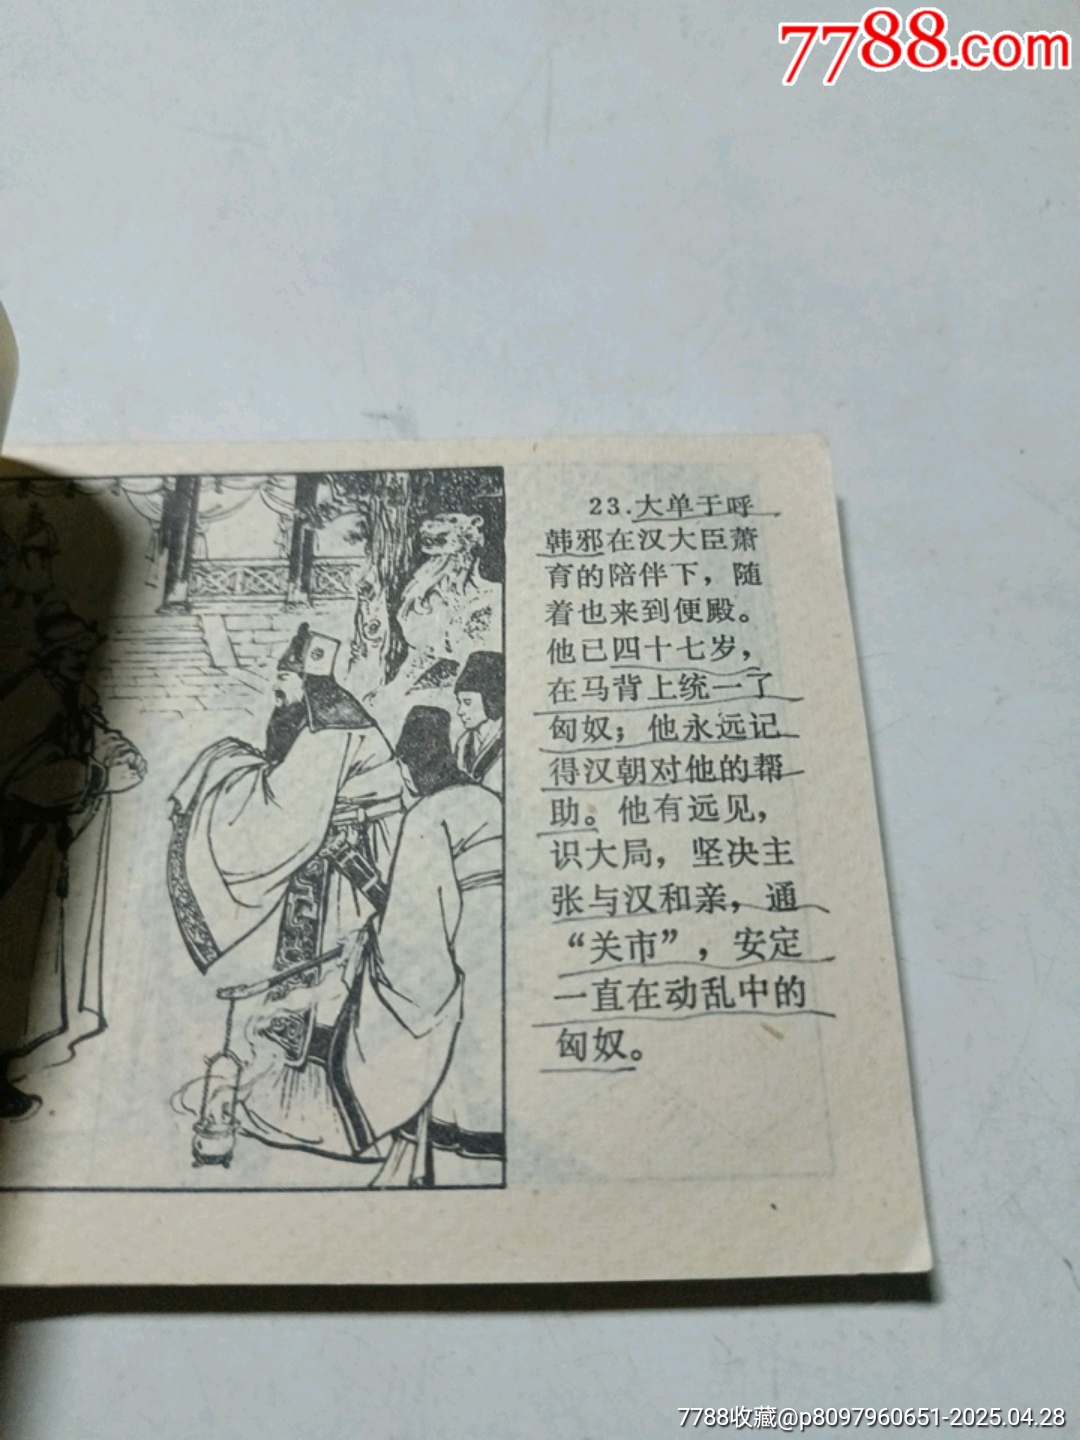 7788.com
23.大单于呼
韩邪在汉大臣萧
育的陪伴下，随
着也来到便殿。
他已四十七岁，
在马背上统一了
匈奴；他永远记
得汉朝对他的帮
助。他有远见，
识大局，坚决主
张与汉和亲，通
“关市”，安定
一直在动乱中的
匈奴。
7788收藏@p8097960651-2025.04.28